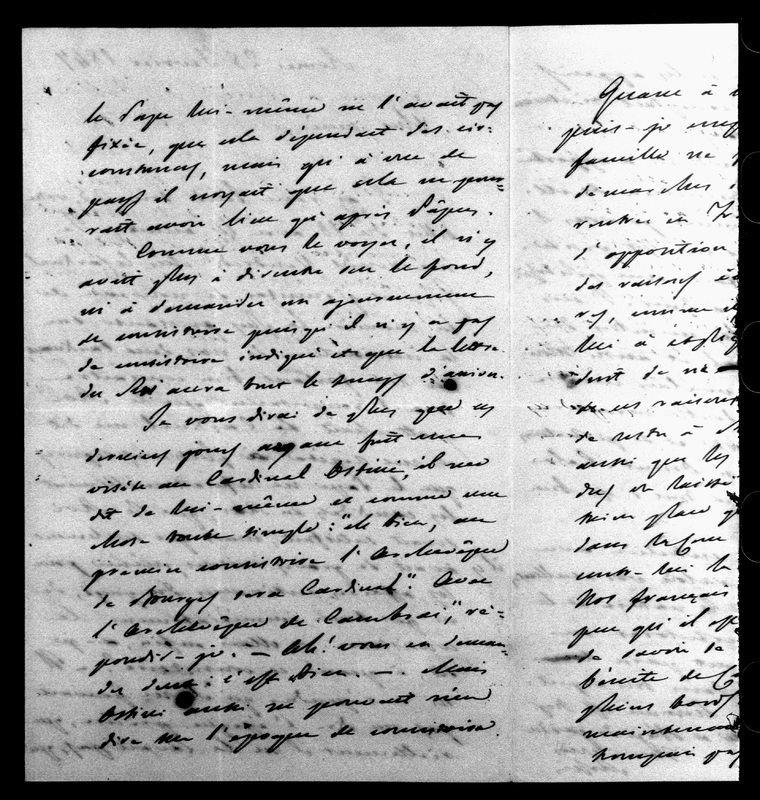 le Pape lui-même ne l'avait pas
fixée, que cela dépendait des cir-
constances, mais qu'à vue de
pays il voyait que cela ne pour-
rait avoir lieu qu'après Pâques.
Comme vous le voyez, il n'y
avait plus à discuter sur le fond,
ni à demander un ajournement
de consistoire puisqu'il n'y a pas
de consistoire indiqué et que la lettre
du Roi aura tout le temps d'arriver.
Je vous dirai de plus que ces
derniers jours ayant fait une
visite au Cardinal Ostini, il me
dit de lui-même et comme une
chose toute simple: "eh bien, au
premier consistoire l'Archevêque
de Bourges sera Cardinal". "Avec
l'Archevêque de Cambrai", ré-
pondis-je. — Ah! vous en deman-
dez deux: c'est bien. — Mais
Ostini aussi ne pouvait rien
dire sur l'époque du consistoire.
Quant à
puis-je
famille ne
démarches
rentrer en
l'opposition
des raisons
lui à
dont de
ces raisons
de rester à
aussi que les
laissé
place
dans
lui la
Nos français
que qu'il
de savoir
plein
maintenant